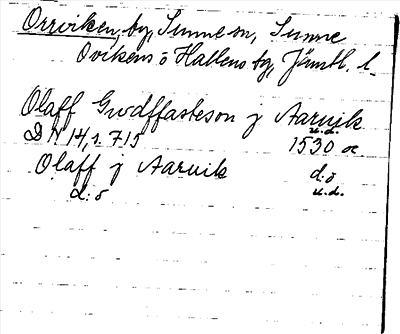 Orrviken, by, Sunne sn, Sunne
Ovikens o Hallens tg, Jämtl. l.
Olaff Gudffasteson j Aarvik
u.d.
DN 14, s. 715 1530 oc
Olaff j Aarvik d:o
d:o u.d.